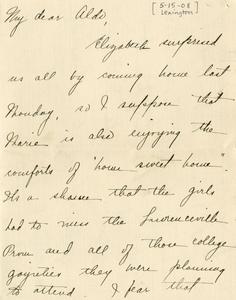 [5-15-08]
[Lexington]
My dear Aldo,
Elizabeth surprised
us all by coming home last
Monday, so I suppose that
Marie is also enjoying the
comforts of "home sweet home".
It's a shame that the girls
had to miss the Lawrenceville
Prom and all of those college
gayeties they were planning
to attend. I fear that